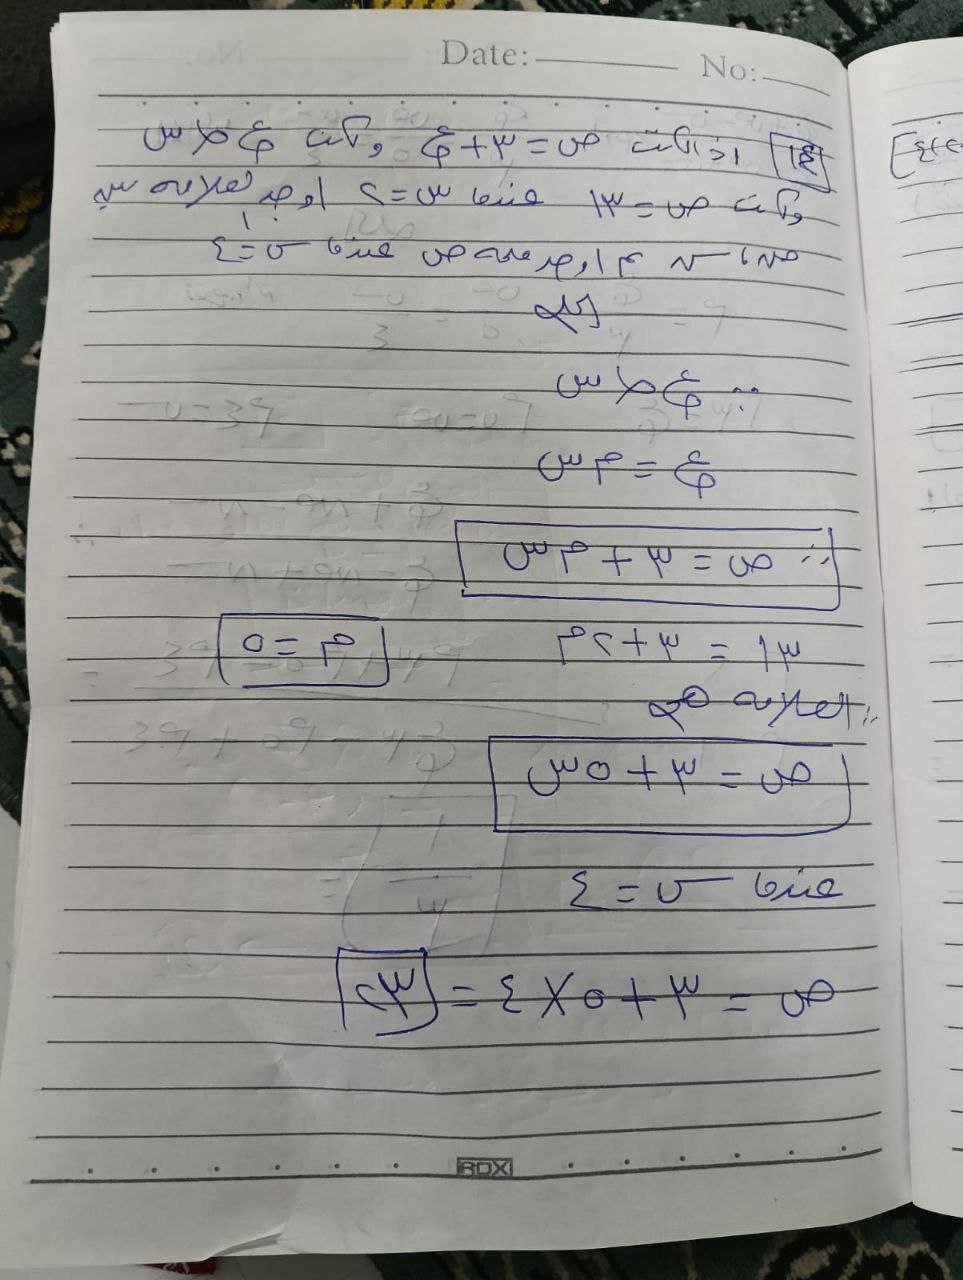 Date: No:
١٤ اذا كانت ص = ٣ + ع وكانت ع ∝ س
وكانت ص = ١٣ عند س = ٢ اوجد العلاقة بين
ص ، س ثم اوجد قيمة ص عندما س = ٤
الحل
∵ ع ∝ س
ع = م س
∴ ص = ٣ + م س
١٣ = ٣ + ٢م م = ٥
∴ العلاقة
ص = ٣ + ٥ س
عندما س = ٤
ص = ٣ + ٥ × ٤ = ٢٣
RDX